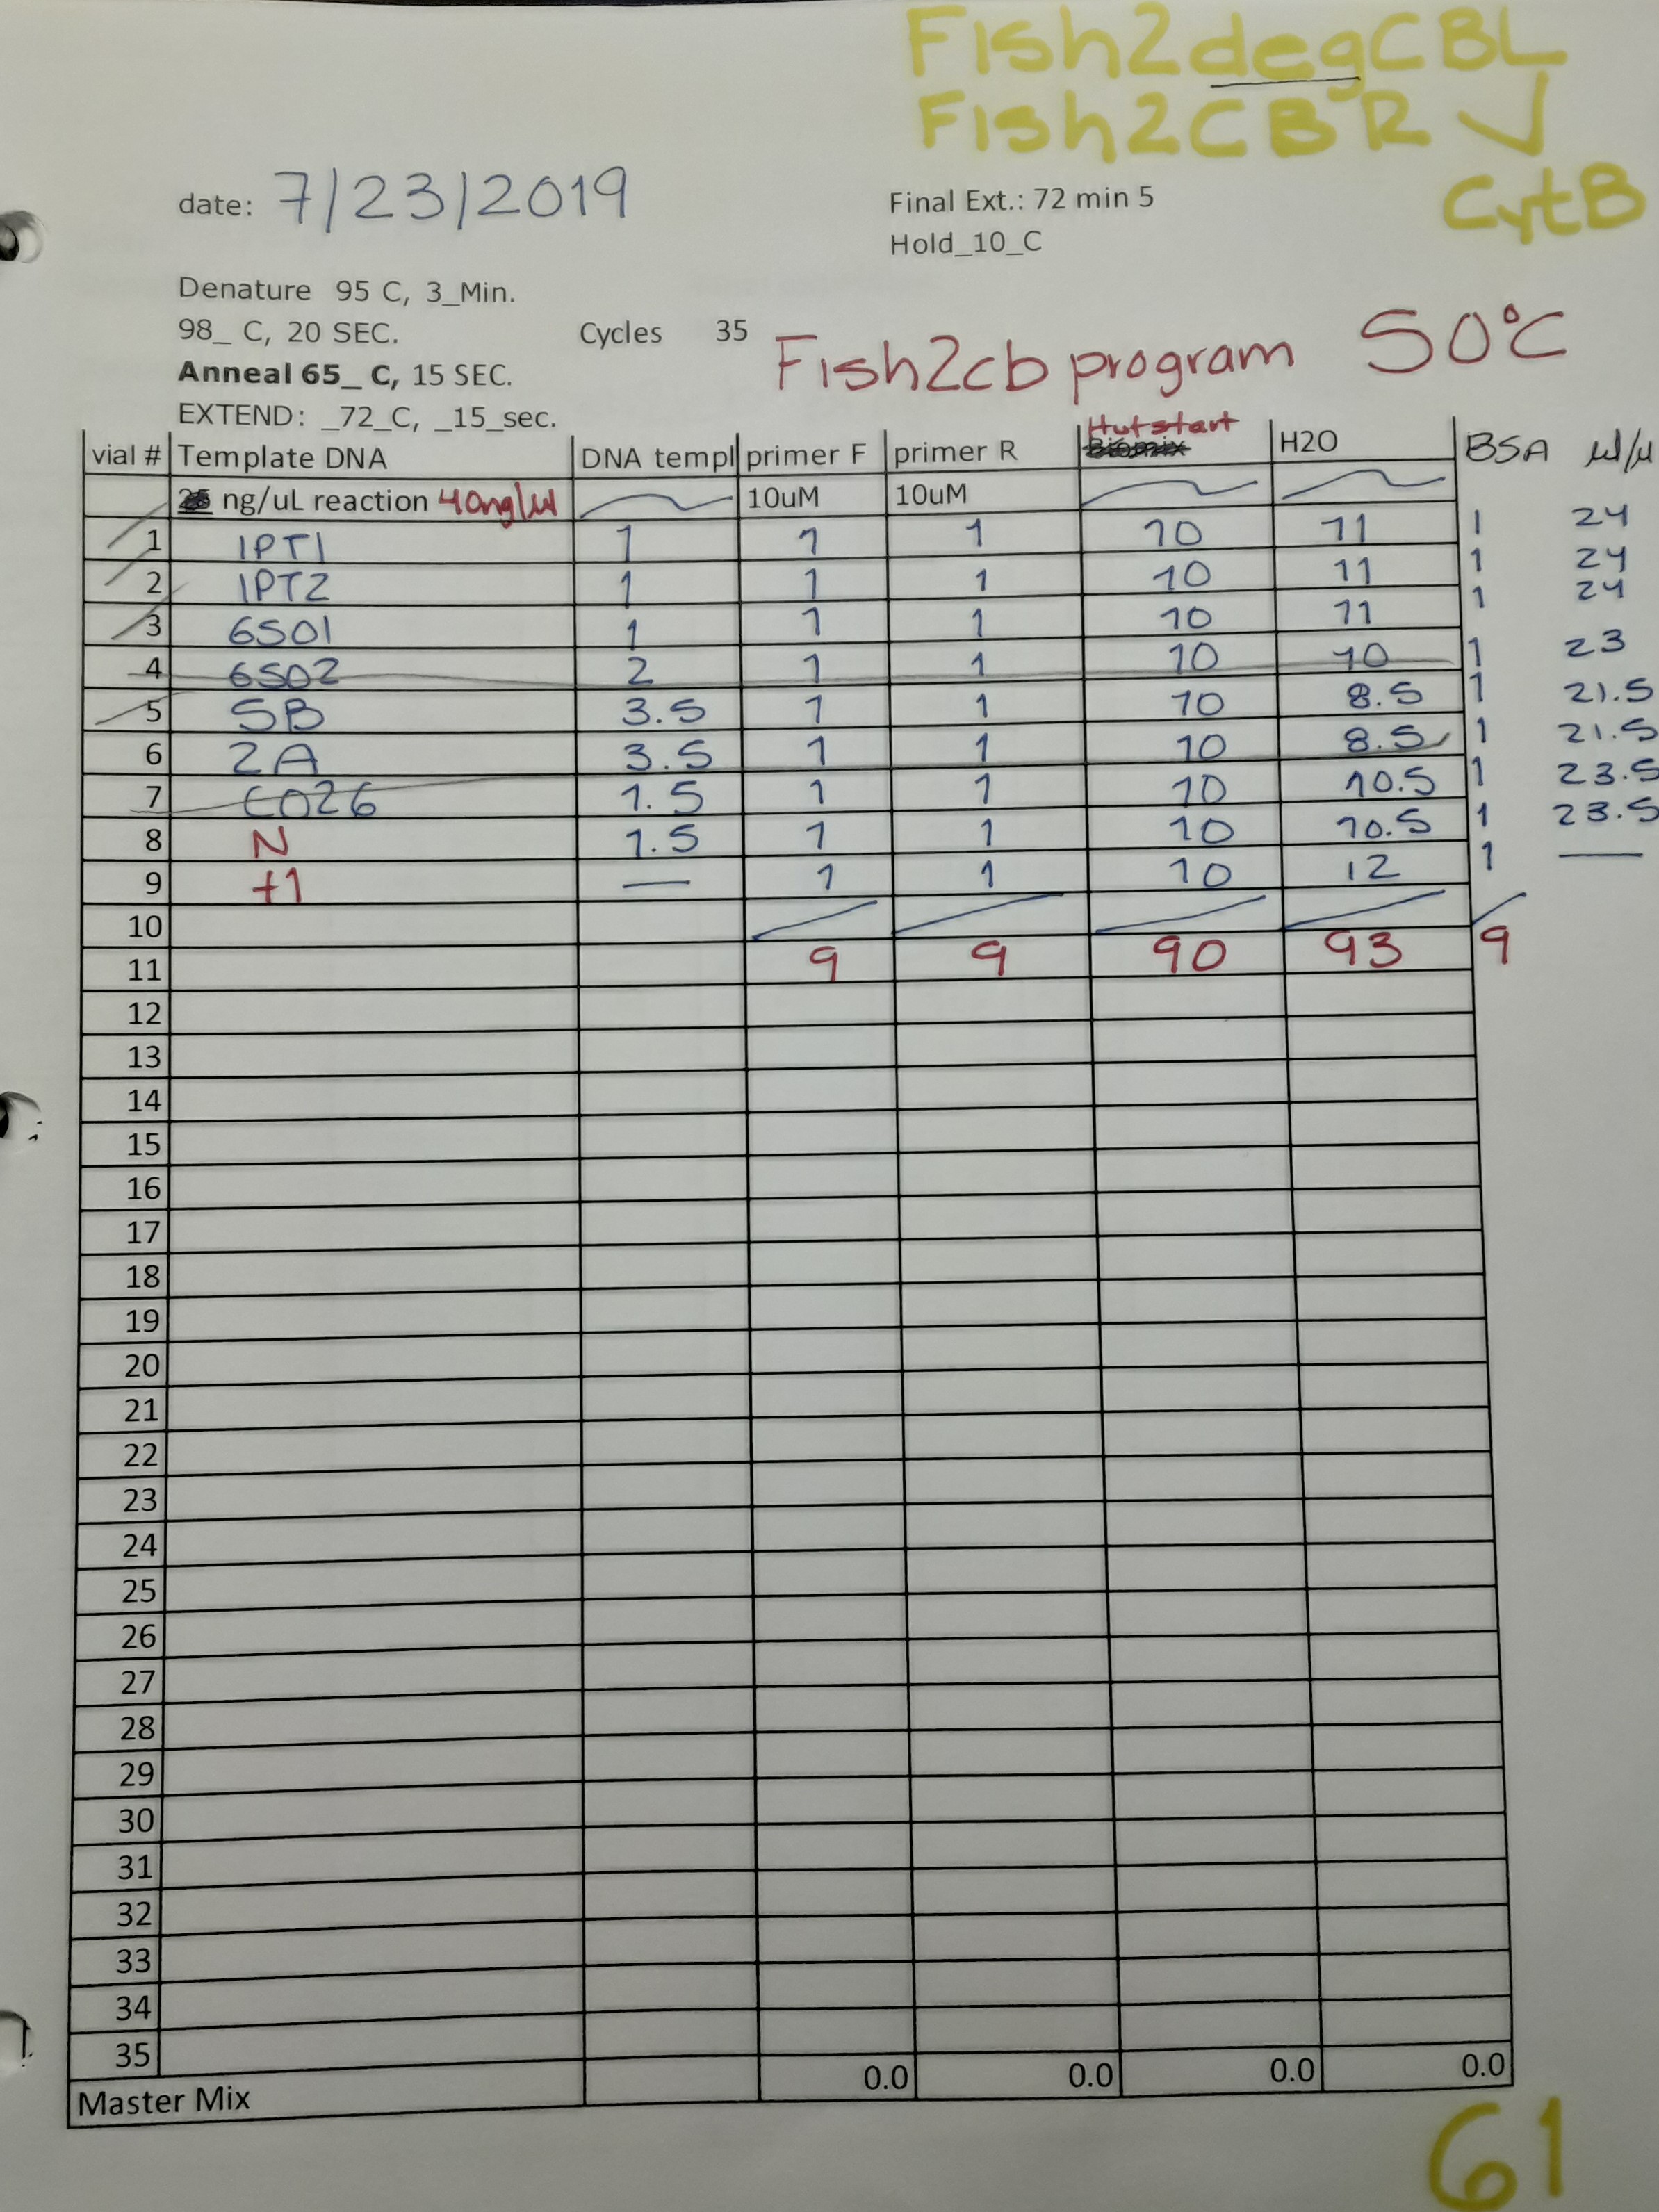 Fish2degCBL
Fish2CBR ✓
CytB
date: 7/23/2019
Final Ext.: 72 min 5
Hold_10_C
Denature 95 C, 3_Min.
98_ C, 20 SEC. Cycles 35
Fish2cb program 50°C
Anneal 65_ C, 15 SEC.
EXTEND: _72_C, _15_sec.
vial # Template DNA DNA templ primer F primer R Hot start H2O BSA
ng/uL reaction 40ng/ul 10uM 10uM
1 IPT1 1 1 1 10 11 1 24
2 IPT2 1 1 1 10 11 1 24
3 6S01 1 1 1 10 11 1 24
4 6S02 2 1 1 10 10 1 23
5 5B 3.5 1 1 10 8.5 1 21.5
6 2A 3.5 1 1 10 8.5 1 21.5
7 C026 1.5 1 1 10 10.5 1 23.5
8 N 1.5 1 1 10 10.5 1 23.5
9 +1 — 1 1 10 12 1 —
10
11 9 9 90 93 9
12
13
14
15
16
17
18
19
20
21
22
23
24
25
26
27
28
29
30
31
32
33
34
35
Master Mix 0.0 0.0 0.0 0.0
61